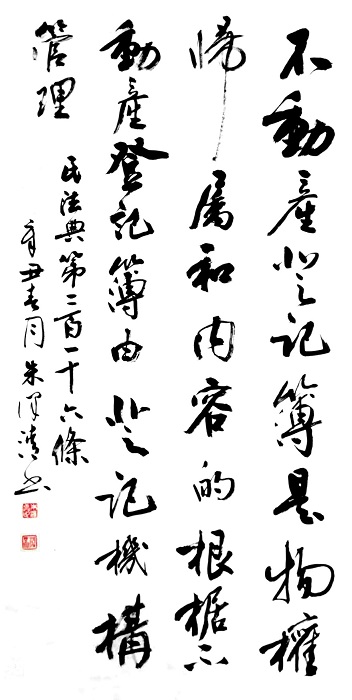 不動產登記簿是物權
歸属和内容的根據不
動產登記簿由登記機構
管理
民法典第二百一十六條
辛丑春月朱澤清书